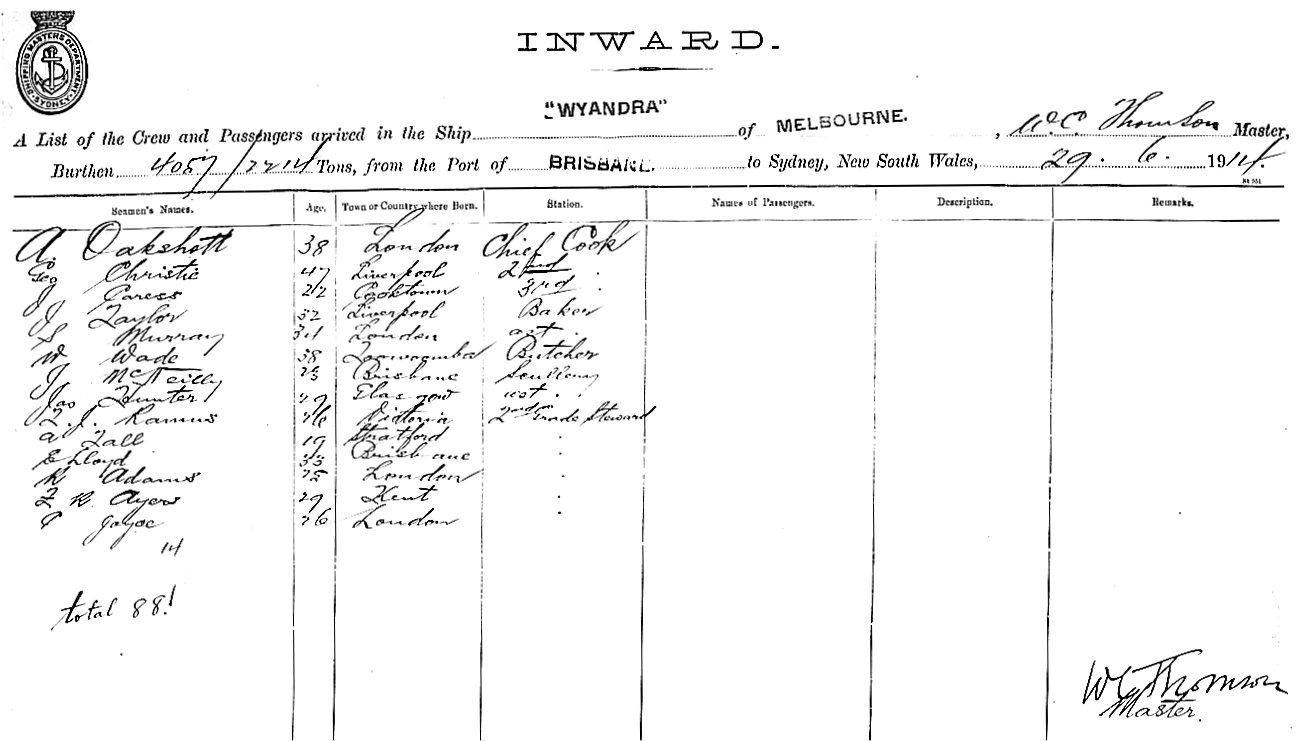 SHIPPING MASTERS DEPARTMENT
SYDNEY
INWARD.
A List of the Crew and Passengers arrived in the Ship "WYANDRA" of MELBOURNE. , W.C. Thomson Master,
Burthen 4057/2214 Tons, from the Port of BRISBANE. to Sydney, New South Wales, 29. 6. 1914.
Seamen's Names. Age. Town or Country where Born. Station. Names of Passengers. Description. Remarks.
A. Oakshott 38 London Chief Cook
Geo Christie 47 Liverpool 2nd .
J Caress 22 Cooktown 3rd .
J Taylor 32 Liverpool Baker
S Murray 34 London ast .
W Wade 38 Toowoomba Butcher
J McNeilly 25 Brisbane
Jas Hunter 29 Glasgow .
J. Ramus 26 Victoria 2nd Grade Steward
a 19 Stratford .
E Lloyd 33 Brisbane .
R Adams 25 London .
R Ayers 29 Kent .
26 London .
14
total 88!
WC Thomson
Master.